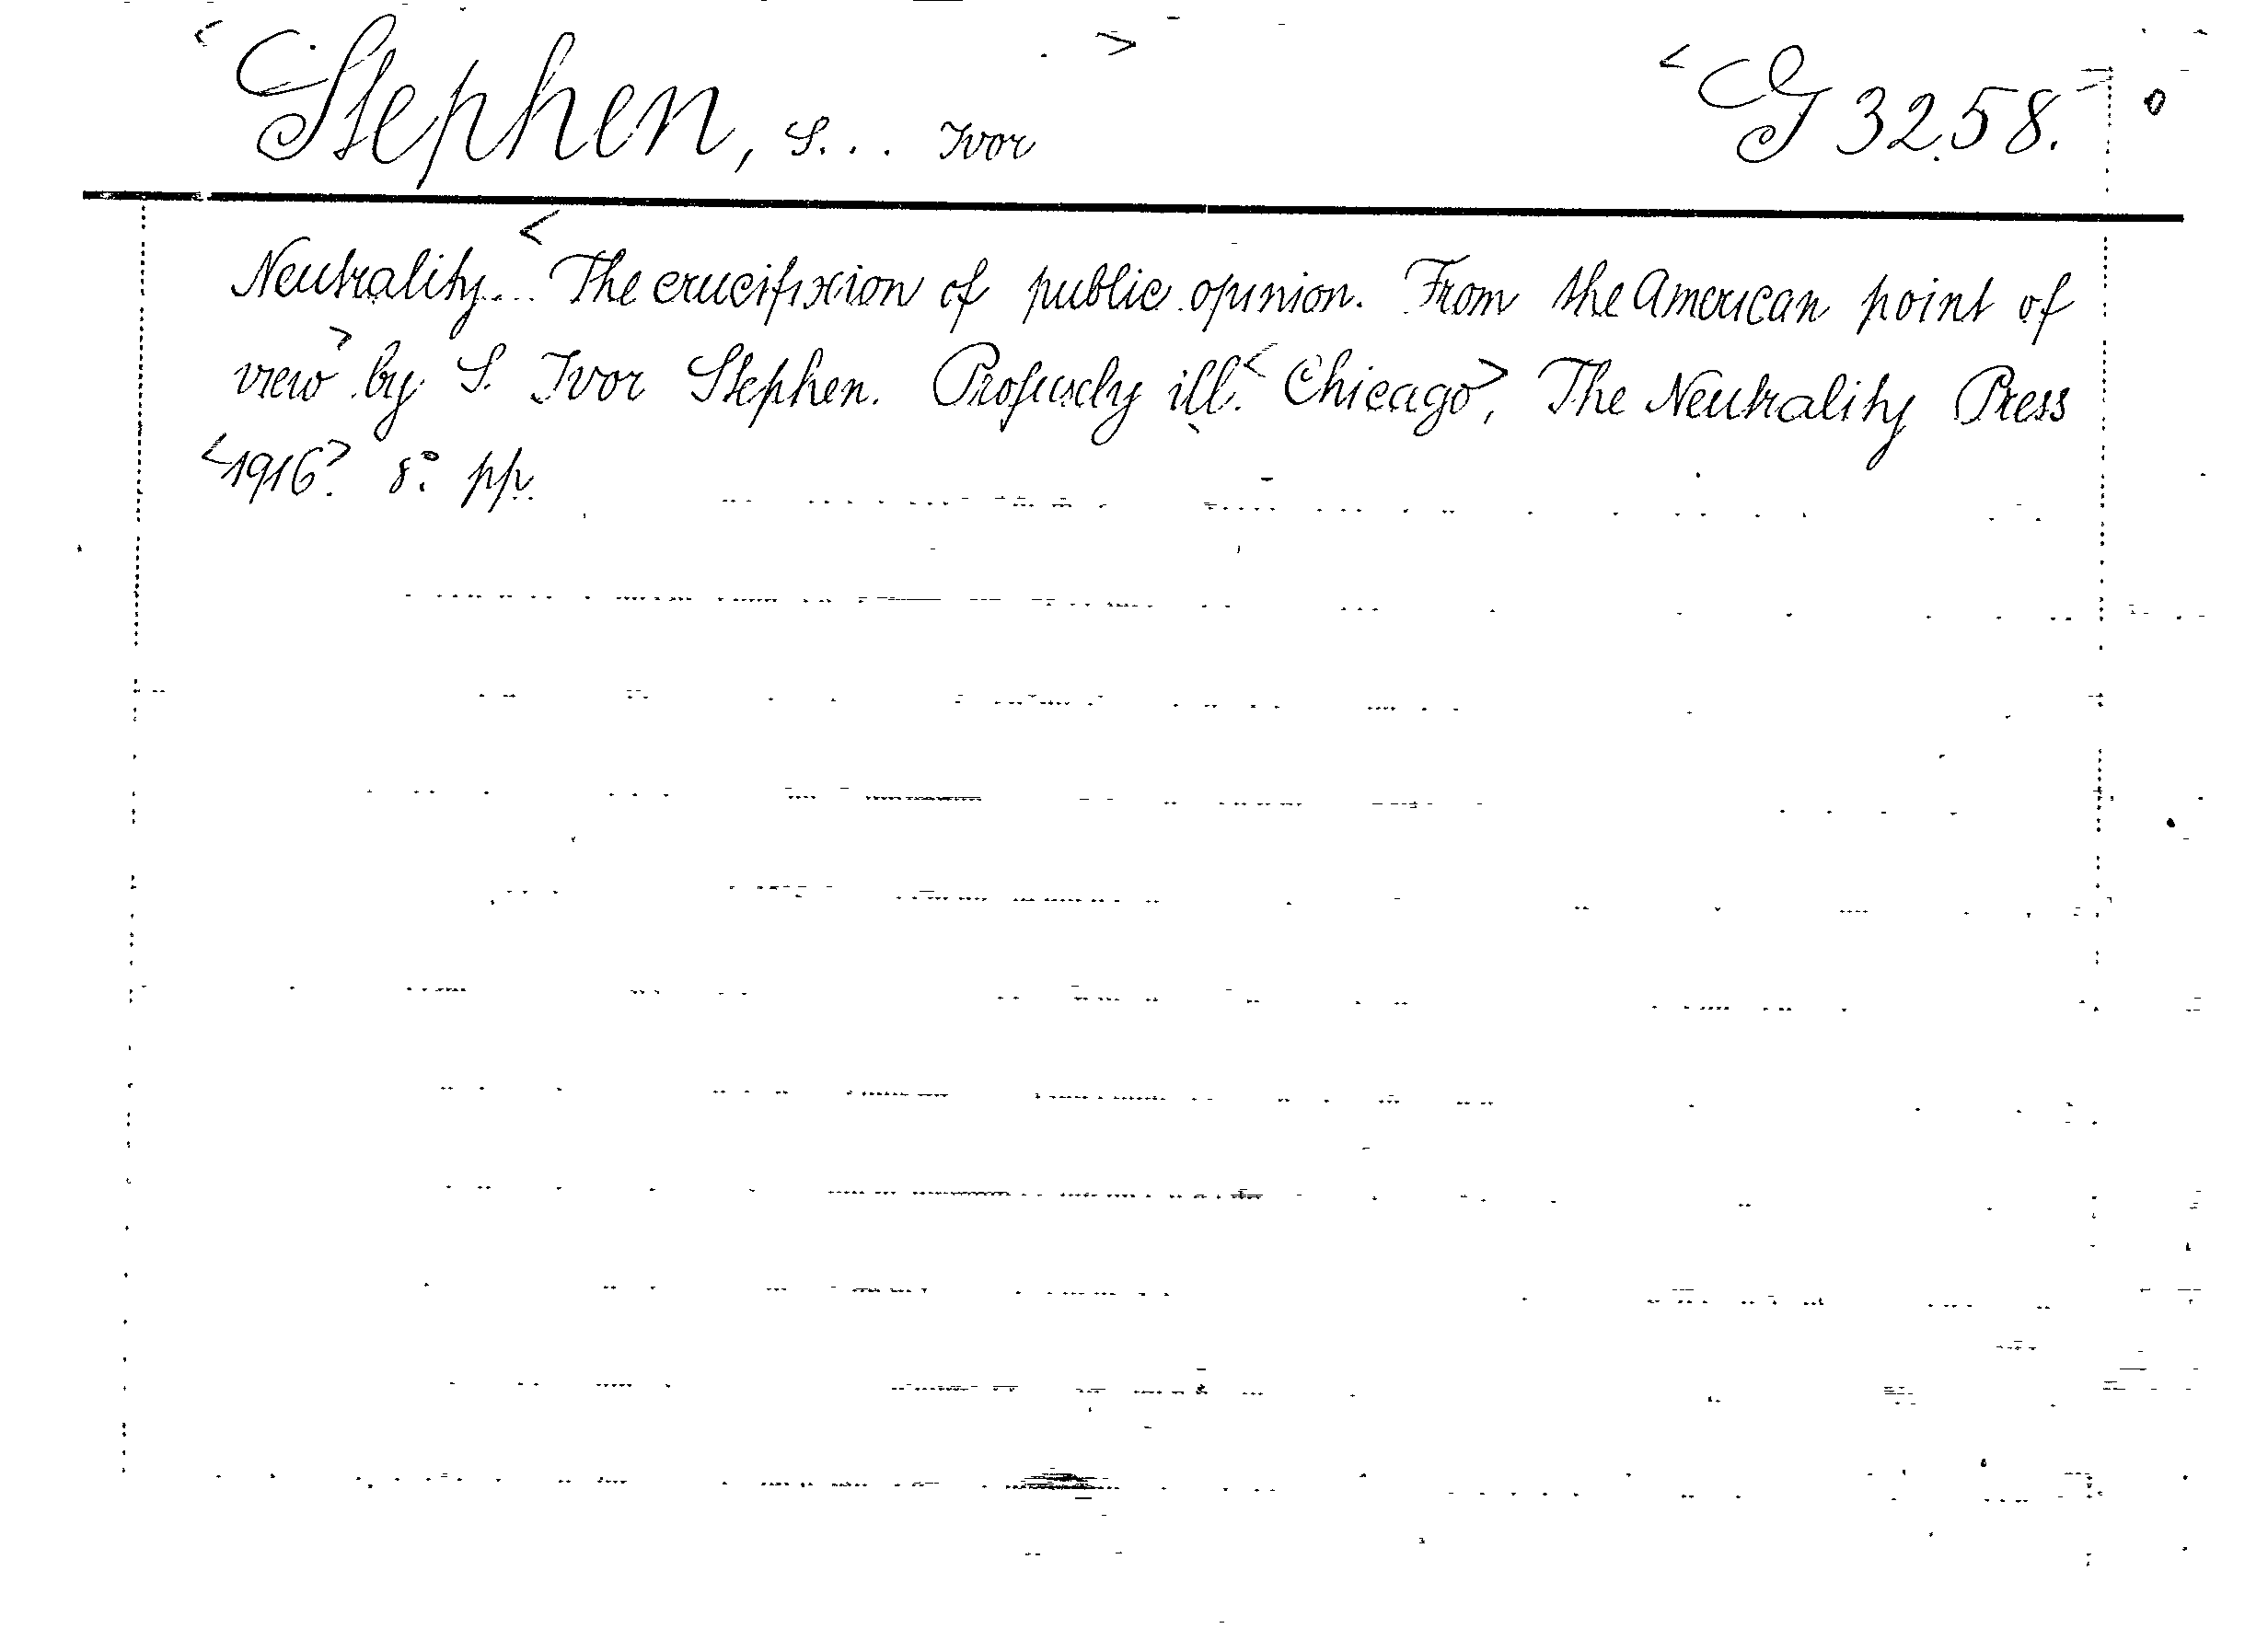 <Stephen, S... Ivor> <G 3258.
Neutrality... <The crucifixion of public opinion. From the American point of
view> by S. Ivor Stephen. Profusely ill. <Chicago>, The Neutrality Press
<1916>. 8° pp.